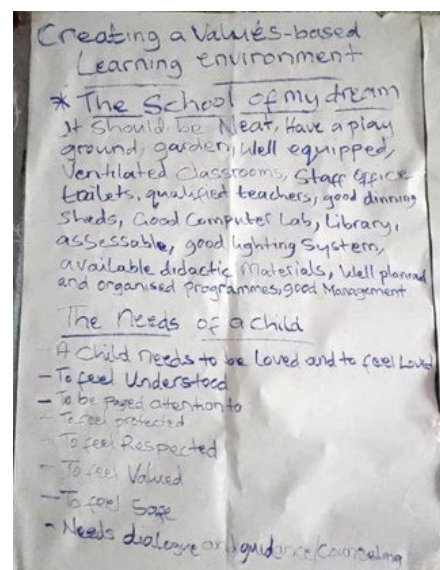 Creating a Values-based
Learning environment
* The School of my dream
It should be Neat, Have a play
ground, garden, Well equipped,
Ventilated Classrooms, Staff Office
toilets, qualified teachers, good dinning
Sheds, Good Computer Lab, Library,
assessable, good lighting System,
available didactic Materials, Well planned
and organised programmes, good Management
The Needs of a child
A Child needs to be loved and to feel Loved
- To feel Understood
- To be payed attention to
- To feel protected
- To feel Respected
- To feel Valued
- To feel Safe
- Needs dialogue and guidance/Counseling